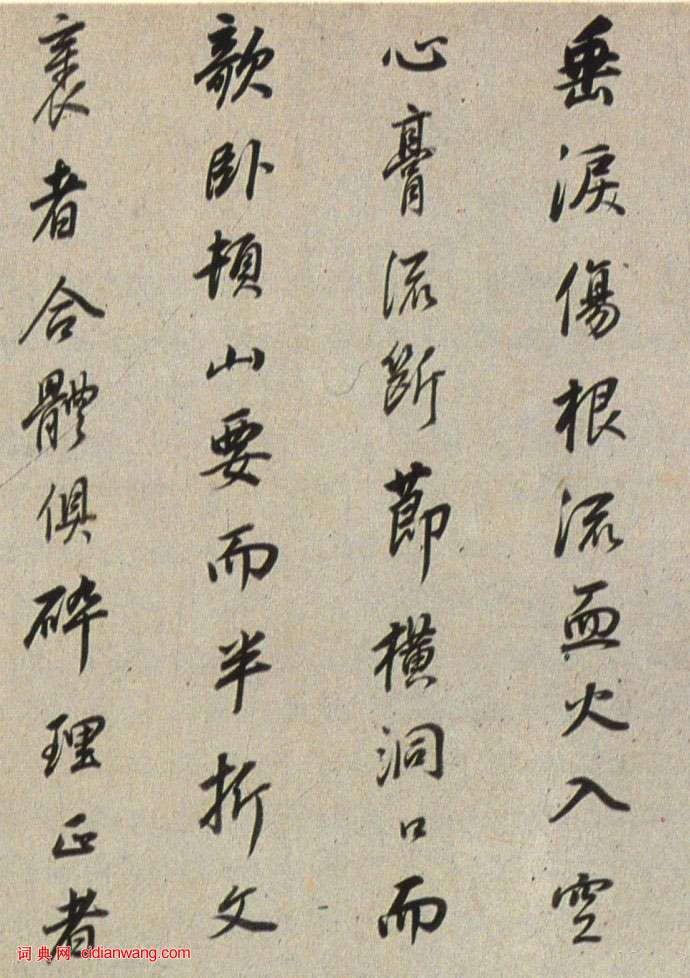 垂淚傷根流血火入空
心膏流断節橫洞口而
欹臥頓山要而半折文
衺者合體俱碎理正者
词典网 cidianwang.com